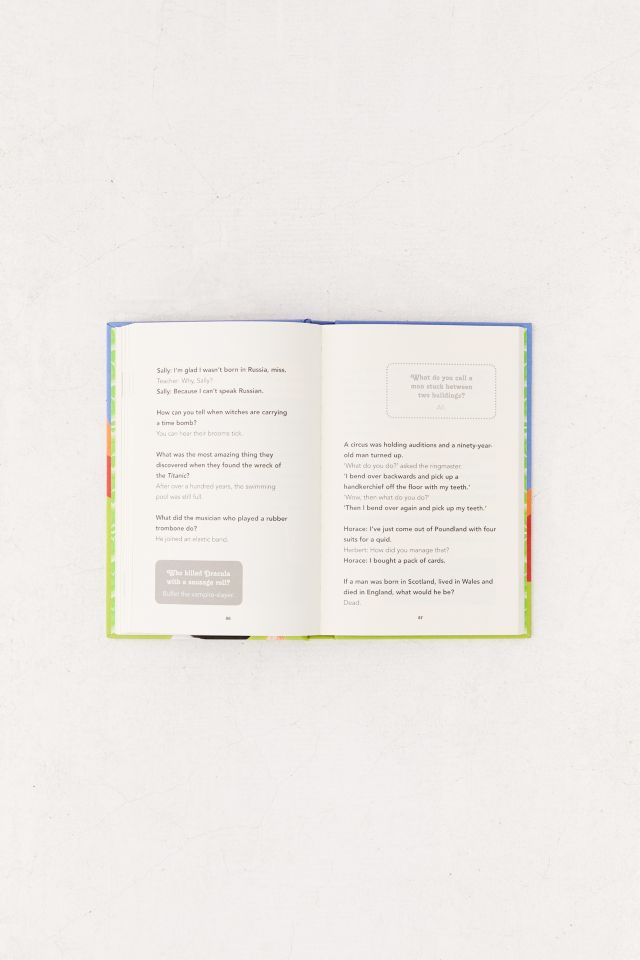 Sally: I'm glad I wasn't born in Russia, miss.
Teacher: Why, Sally?
Sally: Because I can't speak Russian.
How can you tell when witches are carrying
a time bomb?
You can hear their brooms tick.
What was the most amazing thing they
discovered when they found the wreck of
the Titanic?
After over a hundred years, the swimming
pool was still full.
What did the musician who played a rubber
trombone do?
He joined an elastic band.
Who killed Dracula
with a sausage roll?
Buffet the vampire-slayer.
86
What do you call a
man stuck between
two buildings?
Ali.
A circus was holding auditions and a ninety-year-
old man turned up.
'What do you do?' asked the ringmaster.
'I bend over backwards and pick up a
handkerchief off the floor with my teeth.'
'Wow, then what do you do?'
'Then I bend over again and pick up my teeth.'
Horace: I've just come out of Poundland with four
suits for a quid.
Herbert: How did you manage that?
Horace: I bought a pack of cards.
If a man was born in Scotland, lived in Wales and
died in England, what would he be?
Dead.
87